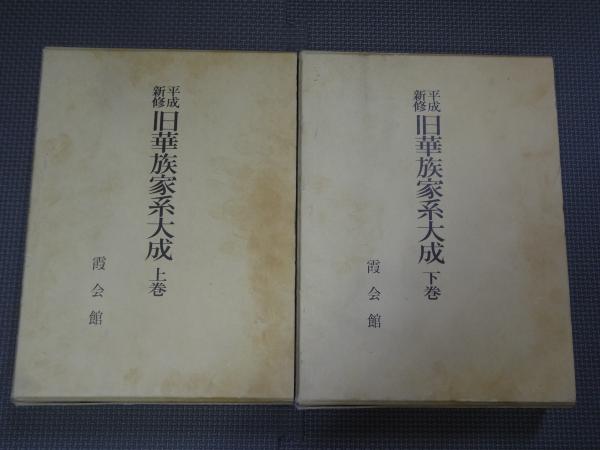 平成新修 旧華族家系大成 上巻
霞会館
平成新修 旧華族家系大成 下巻
霞会館